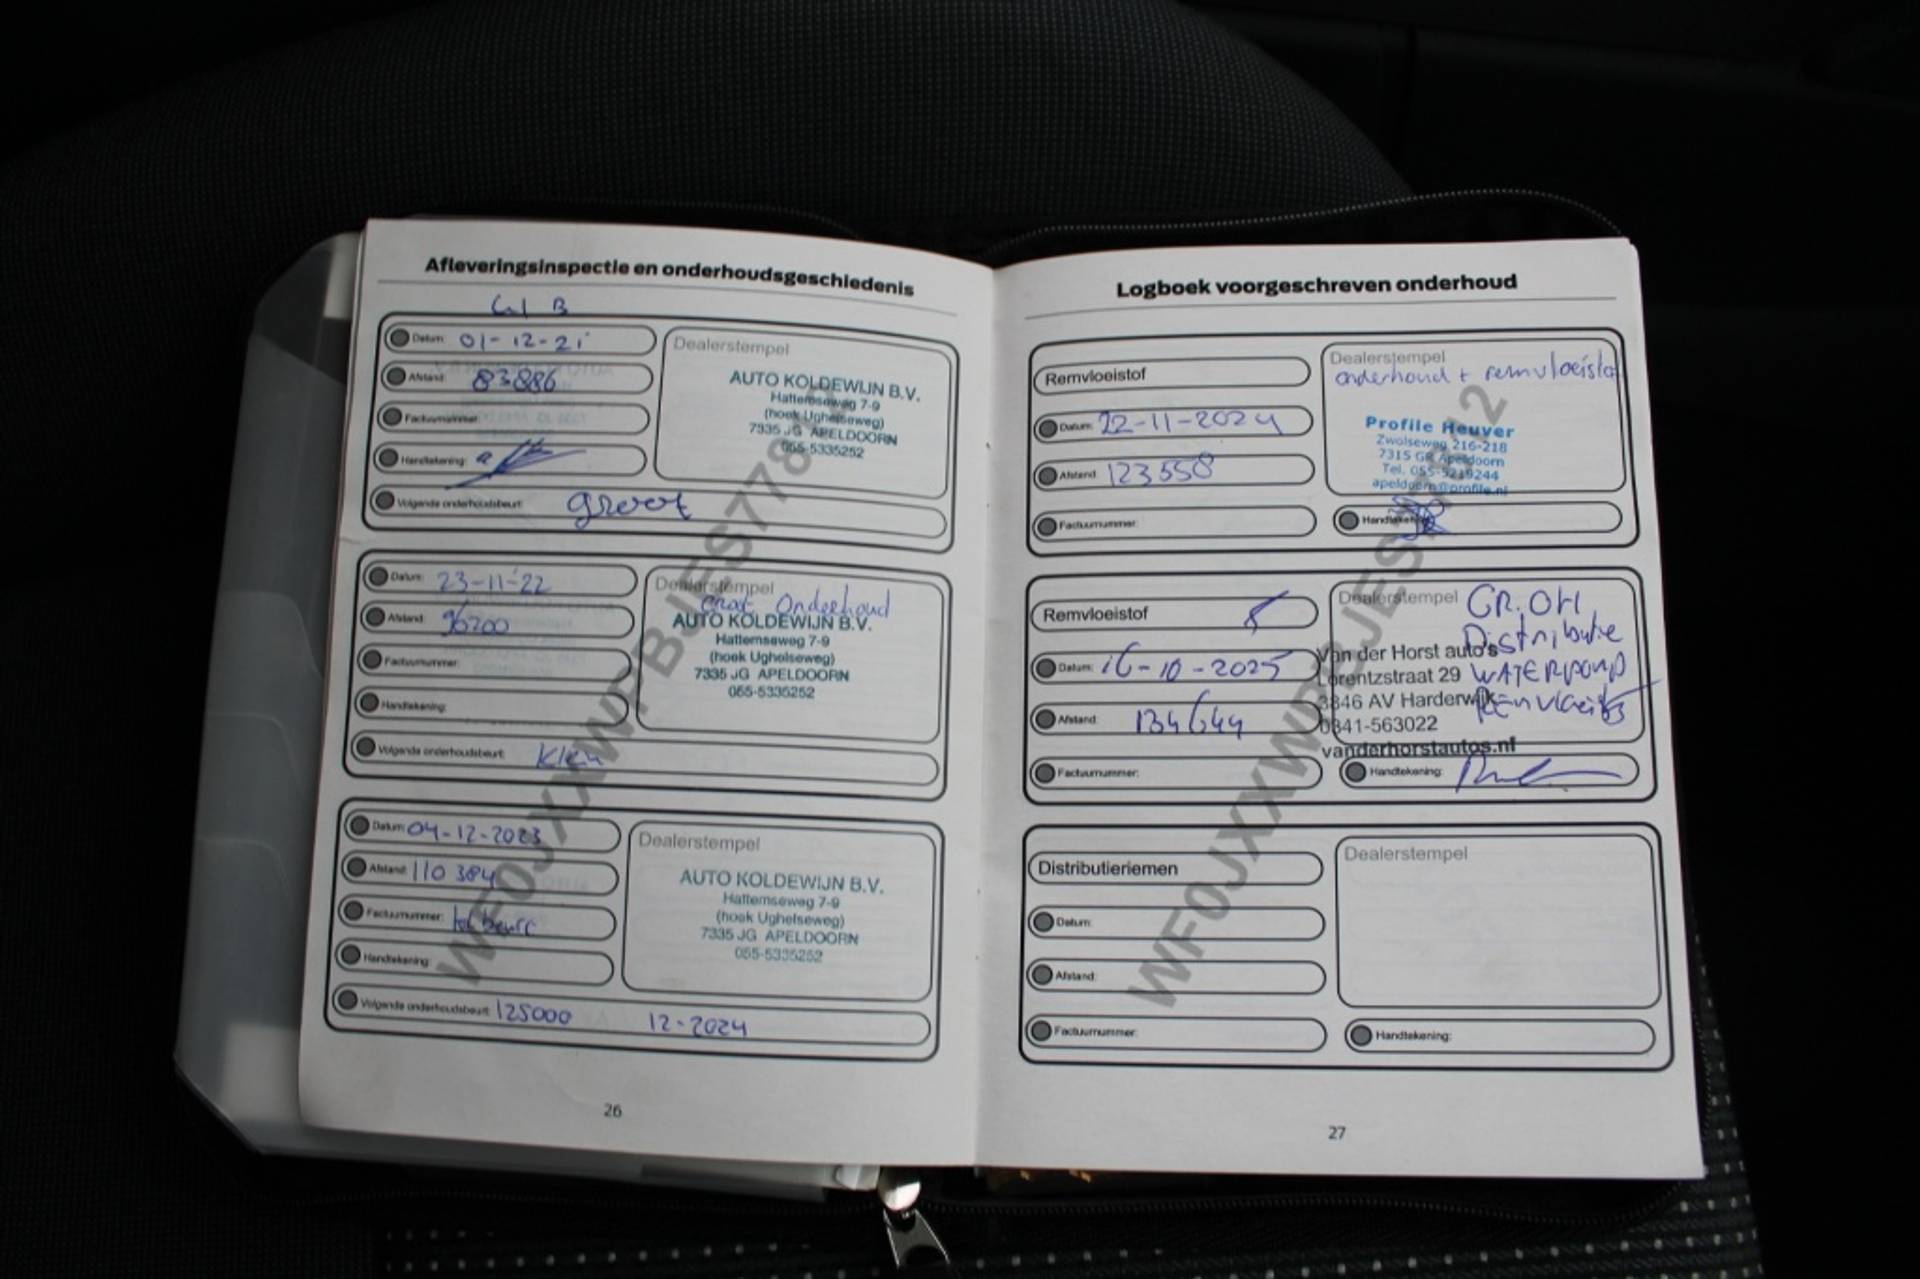 Afleveringsinspectie en onderhoudsgeschiedenis
Datum: 01-12-21
Afstand: 83886
Factuurnummer:
Handtekening:
Volgende onderhoudsbeurt: groot
Dealerstempel
AUTO KOLDEWIJN B.V.
Hattemseweg 7-9
(hoek Ughelseweg)
7335 JG APELDOORN
055-5335252
Datum: 23-11-'22
Afstand: 96200
Factuurnummer:
Handtekening:
Volgende onderhoudsbeurt: klein
Dealerstempel
groot Onderhoud
AUTO KOLDEWIJN B.V.
Hattemseweg 7-9
(hoek Ughelseweg)
7335 JG APELDOORN
055-5335252
Datum: 04-12-2023
Afstand: 110 384
Factuurnummer:
Handtekening:
Volgende onderhoudsbeurt: 125000 12-2024
Dealerstempel
AUTO KOLDEWIJN B.V.
Hattemseweg 7-9
(hoek Ughelseweg)
7335 JG APELDOORN
055-5335252
26
Logboek voorgeschreven onderhoud
Remvloeistof
Datum: 22-11-2024
Afstand: 123558
Factuurnummer:
Dealerstempel
onderhoud + remvloeistof
Profile Heuver
Zwolseweg 216-218
7315 GR Apeldoorn
Tel. 055-5219244
apeldoorn@profile.nl
Handtekening:
Remvloeistof
Datum: 16-10-2025
Afstand: 134644
Factuurnummer:
Dealerstempel
GR. OH
Distributie
WATERPOMP
Van der Horst auto's
Lorentzstraat 29
3846 AV Harderwijk
0341-563022
vanderhorstautos.nl
Handtekening:
Distributieriemen
Datum:
Afstand:
Factuurnummer:
Dealerstempel
Handtekening:
27